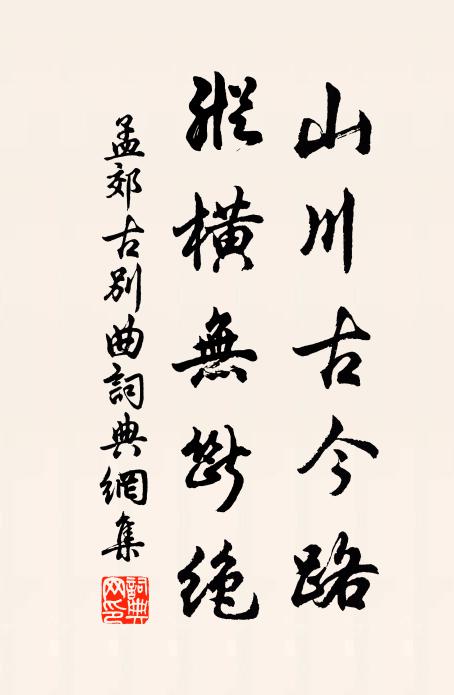 山川古今路
縱橫無斷絶
孟郊古別曲詞典網集
詞典網印